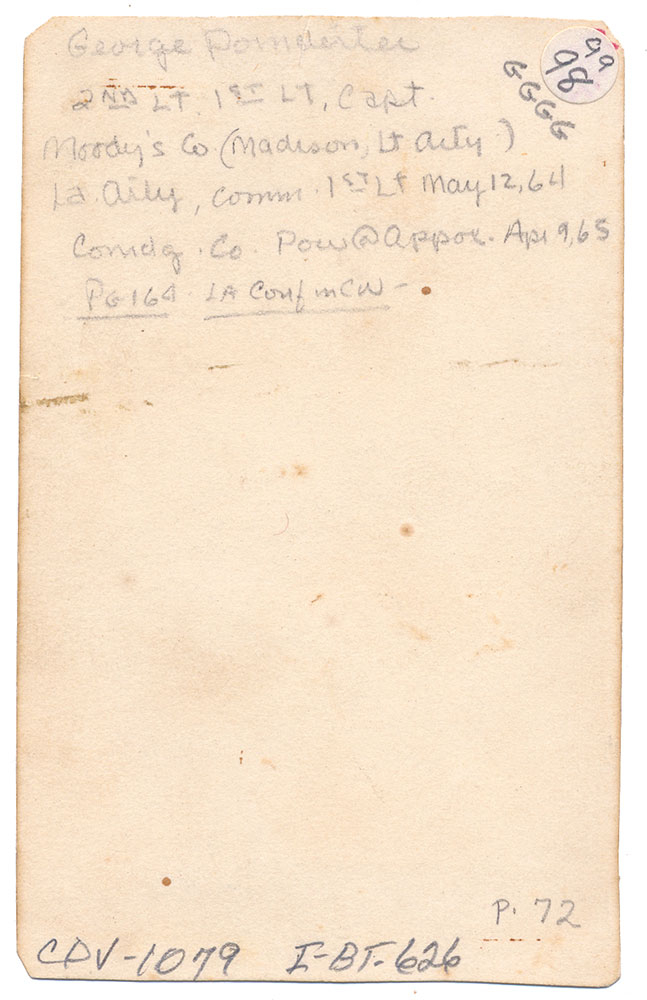 George Poindexter
2ND Lt. 1ST Lt, Capt.
Moody's Co (Madison, Lt Arty)
La. Arty, Comm. 1ST Lt May 12, 64
Comdg. Co. Pow @ Appox. Apr 9, 65
PG 164. LA Conf in CW –
99
98
GGGG
P. 72
CDV-1079 I-BT-626